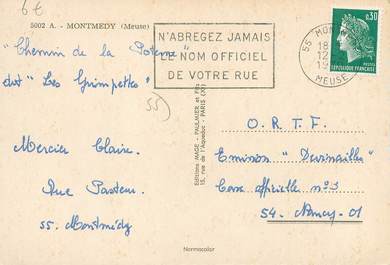 6€
5002 A. - MONTMEDY (Meuse)
"Chemin de la Poterne"
dit "Les Grimpettes"
55)
Mercier Claire
Rue Pasteur
55. Montmédy
N'ABREGEZ JAMAIS
LE NOM OFFICIEL
DE VOTRE RUE
55 MON
18
12
19
MEUSE
0,30
REPUBLIQUE FRANÇAISE
Editions MAGE - PAULMIER et Fils
15, rue de l'Aqueduc - PARIS (X)
O. R. T. F.
Emission "Devinailles"
Case officielle n° 3
54 - Nancy - 01
Normacolor